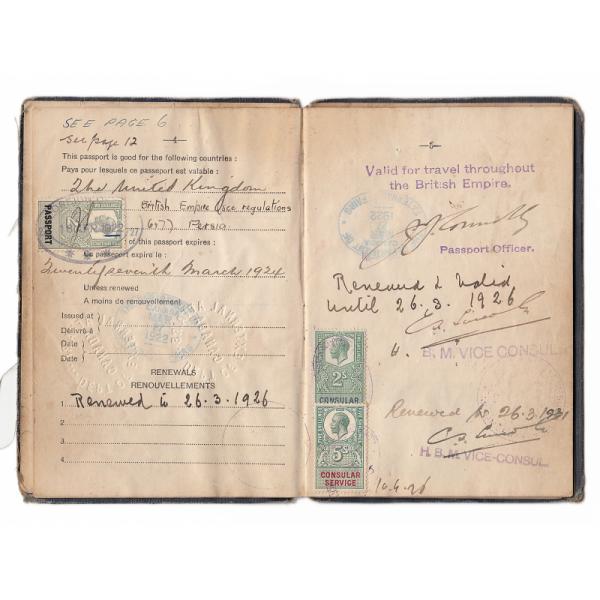 SEE PAGE 6
See page 12
4
This passport is good for the following countries :
Pays pour lesquels ce passeport est valable :
The United Kingdom
British Empire (see regulations
6+7) Persia
PASSPORT
of this passport expires :
Ce passeport expire le :
Twentyseventh March 1924
Unless renewed
A moins de renouvellement
Issued at
Délivré à
Date)
Date)
RENEWALS
RENOUVELLEMENTS
1. Renewed to 26.3.1926
2.
3.
4.
5
Valid for travel throughout
the British Empire.
Passport Officer.
Renewed & Valid
until 26.3.1926
H. B. M. VICE CONSUL
2s
CONSULAR
5s
CONSULAR
SERVICE
Renewed to 26.3.1931
H. B. M. VICE-CONSUL.
10.4.26